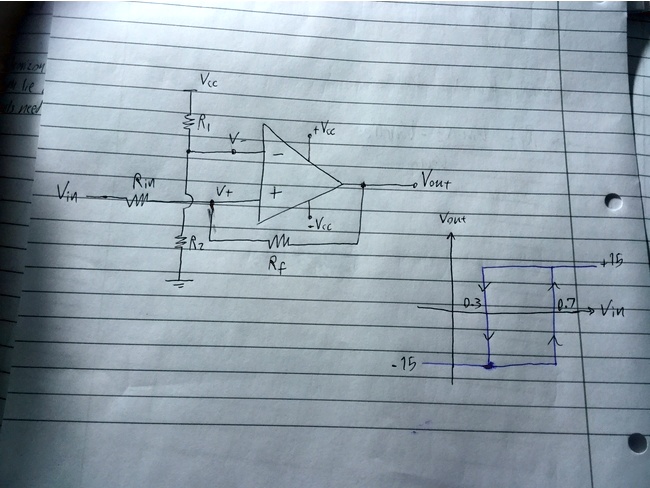 Vcc
R1
V-
+Vcc
-
Vin
Rin
V+
+
Vout
-Vcc
R2
Rf
Vout
+15
0.3
0.7
Vin
-15